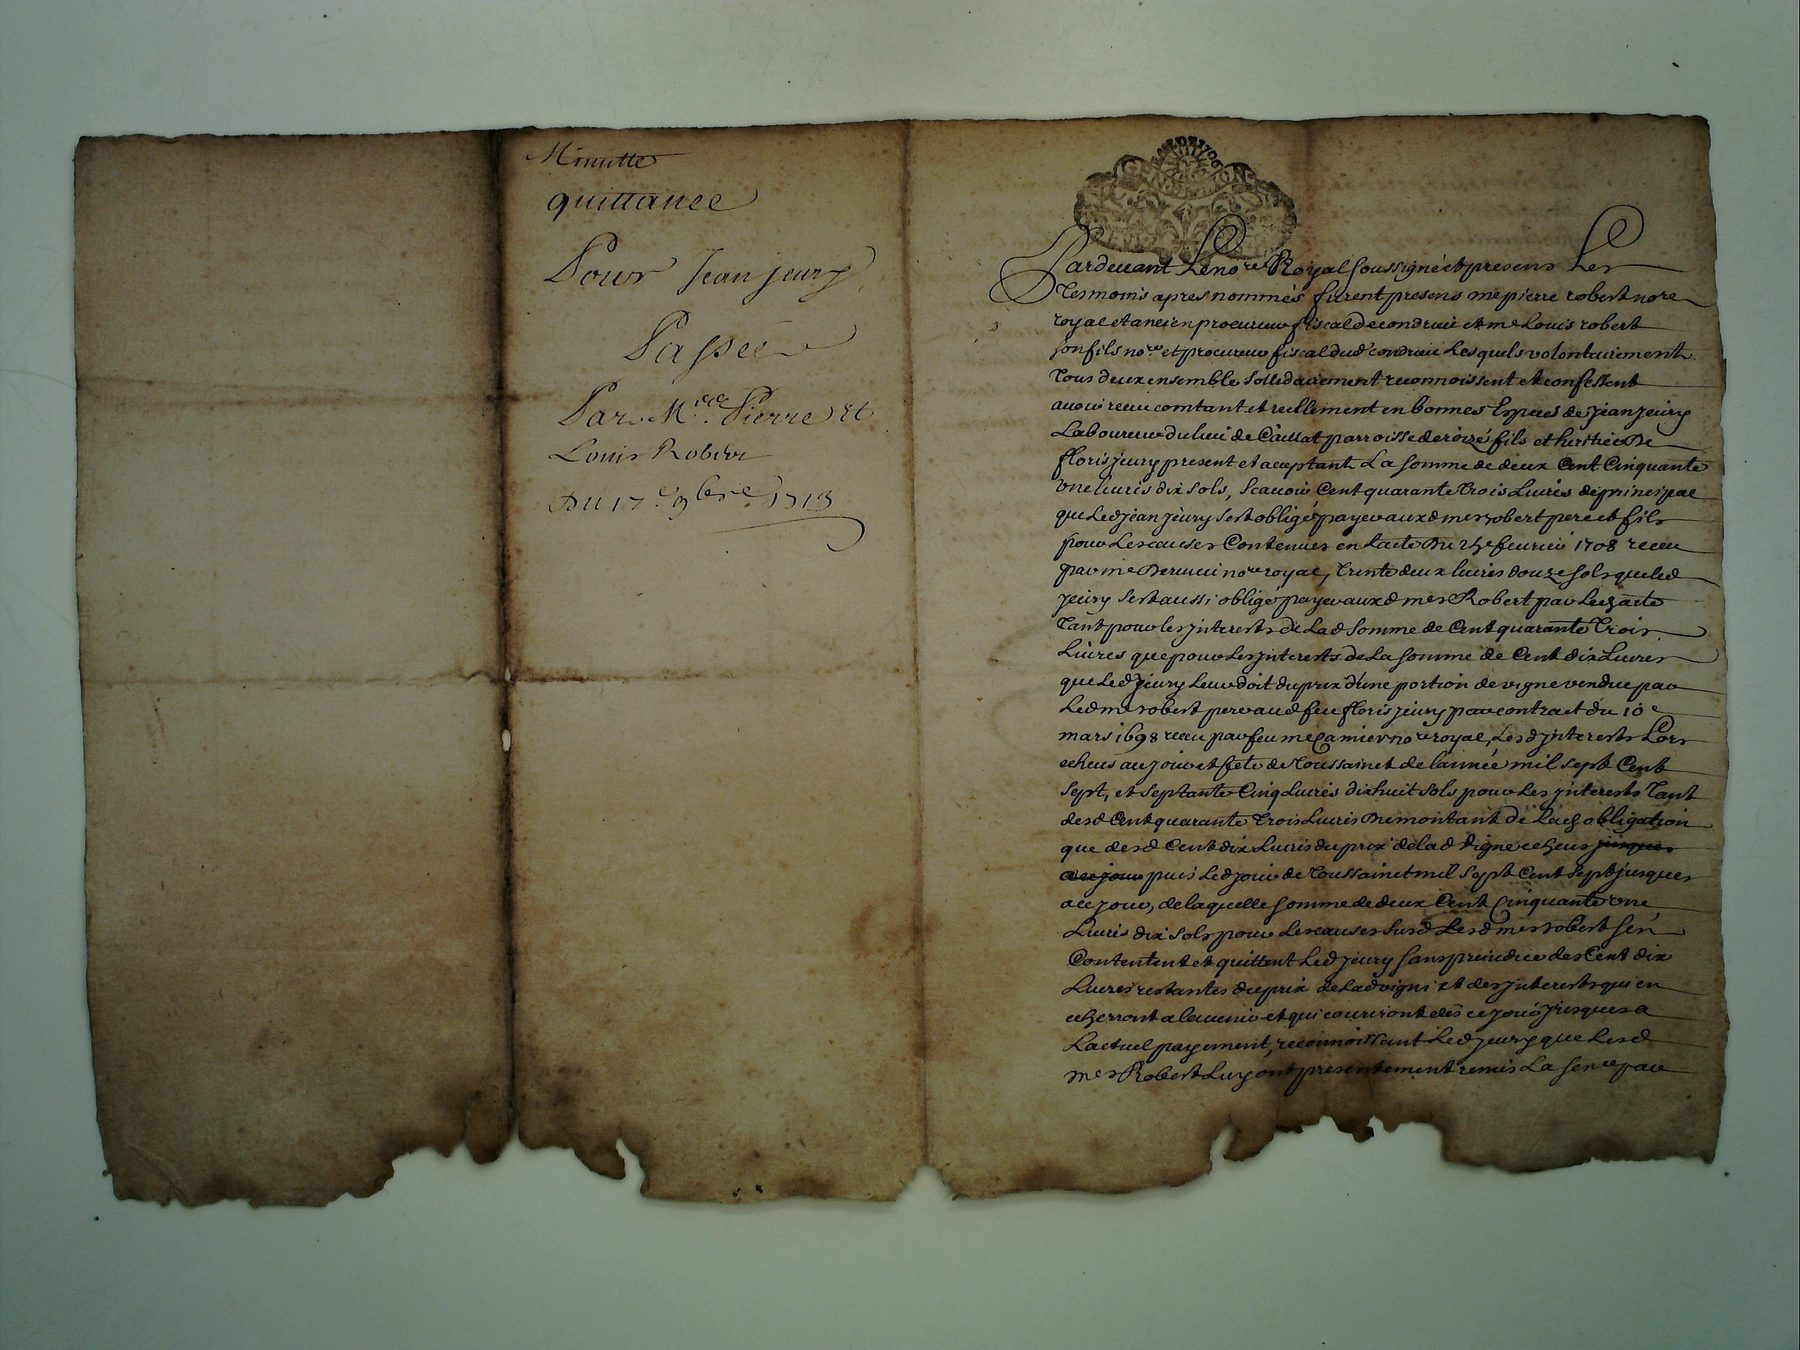 Minutte
quittance
Pour Jean jeury
Passée
Par Mres Pierre Et
Louis Robert
Du 17e 9bre 1713
Pardevant Le nore Royal soussigné et presens Les
Tesmoins apres nommés furent presens me pierre robert nore
royal et ancien procureur fiscal de condrieu et me Louis robert
son fils nore et procureur fiscal dud condrieu Lesquels volontairement
Tous deux ensemble sollidairement reconnoissent et confessent
avoir receu comtant et reellement en bonnes Especes de jean jeury
Laboureur du lieu de parroisse de fils et herittier De
floris jeury present et aceptant La somme de deux Cent Cinquante
une livres dix sols, scavoir Cent quarante trois Livres de principal
que Led jean jeury s'est obligé payer auxd mes robert pere et fils
pour Les causes Contenues en Lacte Du feuvrier 1708 receu
par me nore royal, Trente deux livres douze sols que led
jeury s'est aussi obligé payer auxd mes Robert par Led acte
Tant pour les jnterests de Lad somme de Cent quarante Trois
Livres que pour Les jnterests de La somme de Cent dix Livres
que Led jeury Leur doit du prix d'une portion de vigne vendue par
Led me robert pere aud feu floris jeury par contract du 10e
mars 1698 receu par feu me Camier nore royal, Lesd jnterests Lors
echeus au jour et fete de Toussainct de lannée mil sept Cent
sept, et septante Cinq Livres dix huit sols pour Les jnterests Tant
desd Cent quarante Trois Livres Du montant de Lad obligation
que desd Cent dix Livres du prix de lad vigne echeus jusques
a ce jour puis Led jour de Toussainct mil sept Cent sept jusques
a ce jour, de laquelle somme de deux Cent Cinquante une
Livres dix sols pour Les causes susd Lesd mes robert s'en
Contentent et quittent Led jeury sans preiudice des Cent dix
Livres restantes du prix de Lad vigne et des jnterests qui en
echerront a lavenir et qui courront dès ce jour jusques a
Lactuel payement, reconnoissant Led jeury que Lesd
mes Robert Luy ont presentement remis La par